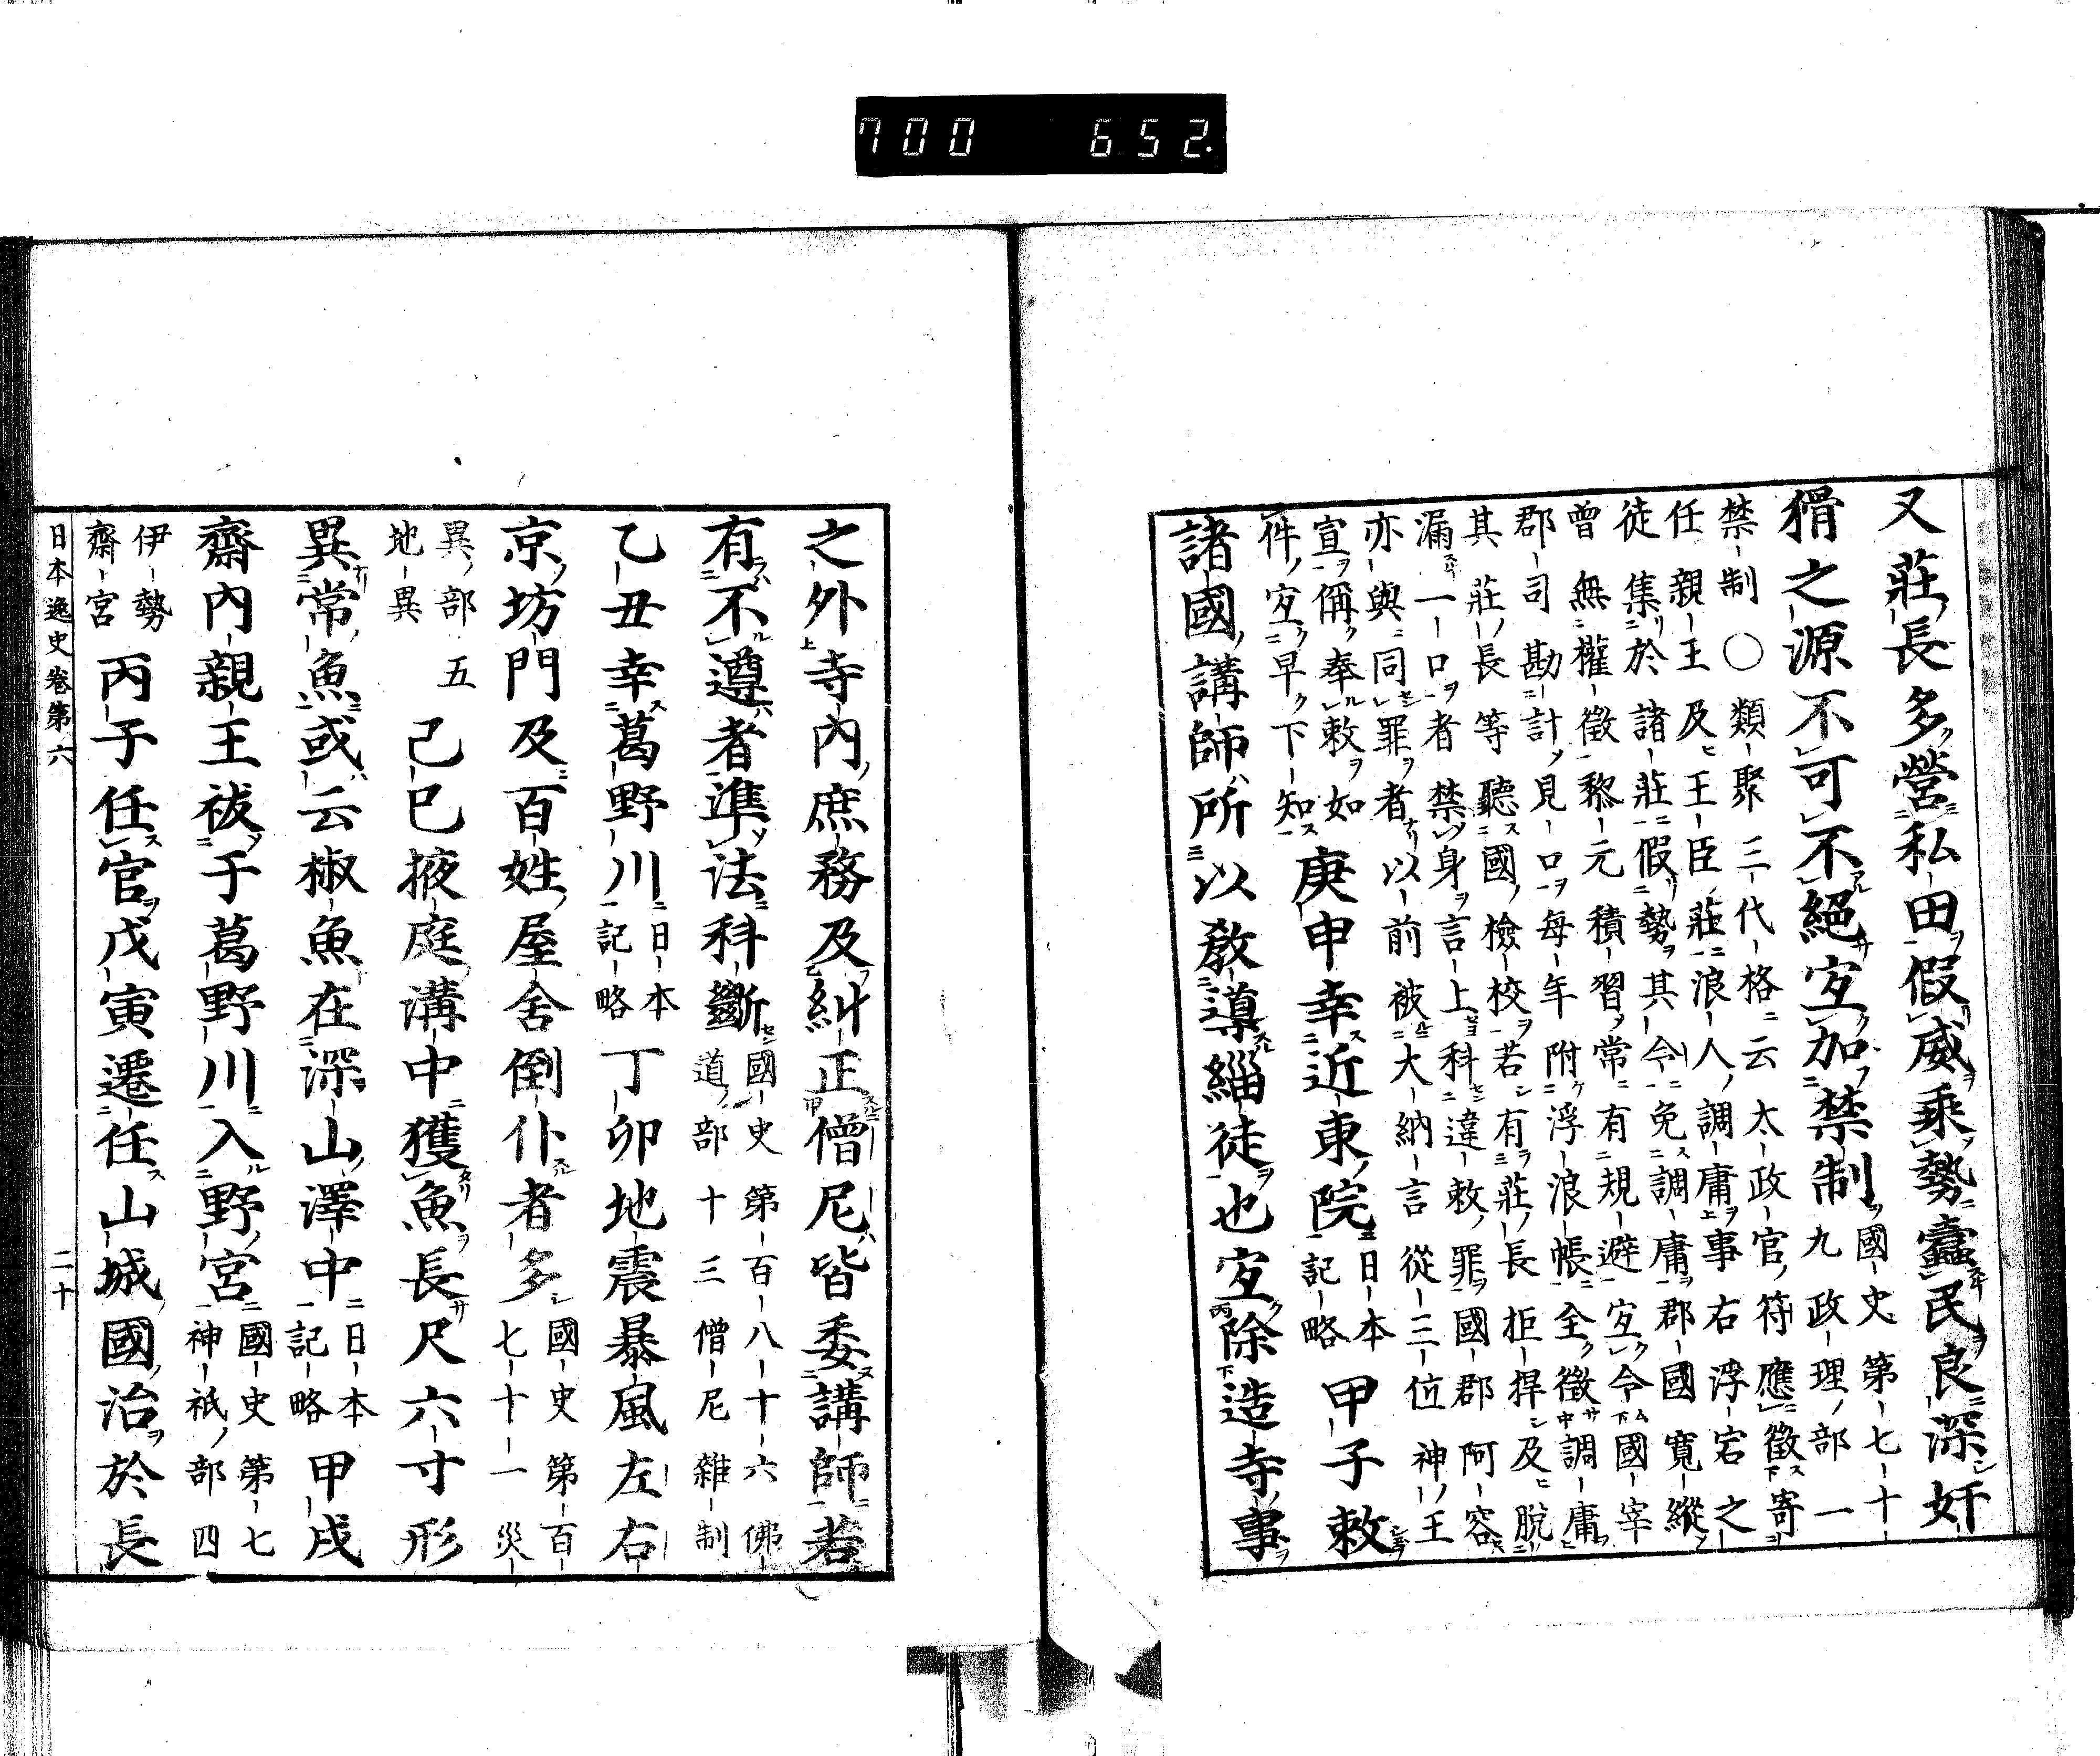 又莊長多營私田假威乘勢蠹民良深奸
猾之源不可不絕宜加禁制國史第七十
九政理部一
禁制○類聚三代格云太政官符應徵寄
任親王及王臣莊浪人調庸事右浮宕之
徒集於諸莊假勢其令免調庸郡國寬縱
曾無權徵黎元積習常有規避宜令國宰
郡司勘計見口每年附浮浪帳全徵調庸
其莊長等聽國檢校若有莊長拒捍及脫
漏一口者禁身言上科違敕罪國郡阿容
亦與同罪者以前被大納言從三位神王
宣偁奉敕如
件宜早下知庚申幸近東院日本記略甲子敕
諸國講師所以教導緇徒也宜除造寺事
之外寺內庶務及糾正僧尼皆委講師若
有不遵者準法科斷國史第百八十六佛
道部十三僧尼雜制
乙丑幸葛野川日本記略丁卯地震暴風左右
京坊門及百姓屋舍倒仆者多國史第百
七十一災
異部五
地異己巳掖庭溝中獲魚長尺六寸形
異常魚或云椒魚在深山澤中日本記略甲戌
齋內親王祓于葛野川入野宮國史第七
神祇部四
伊勢
齋宮丙子任官戊寅遷任山城國治於長
日本逸史卷第六 二十
700 652.